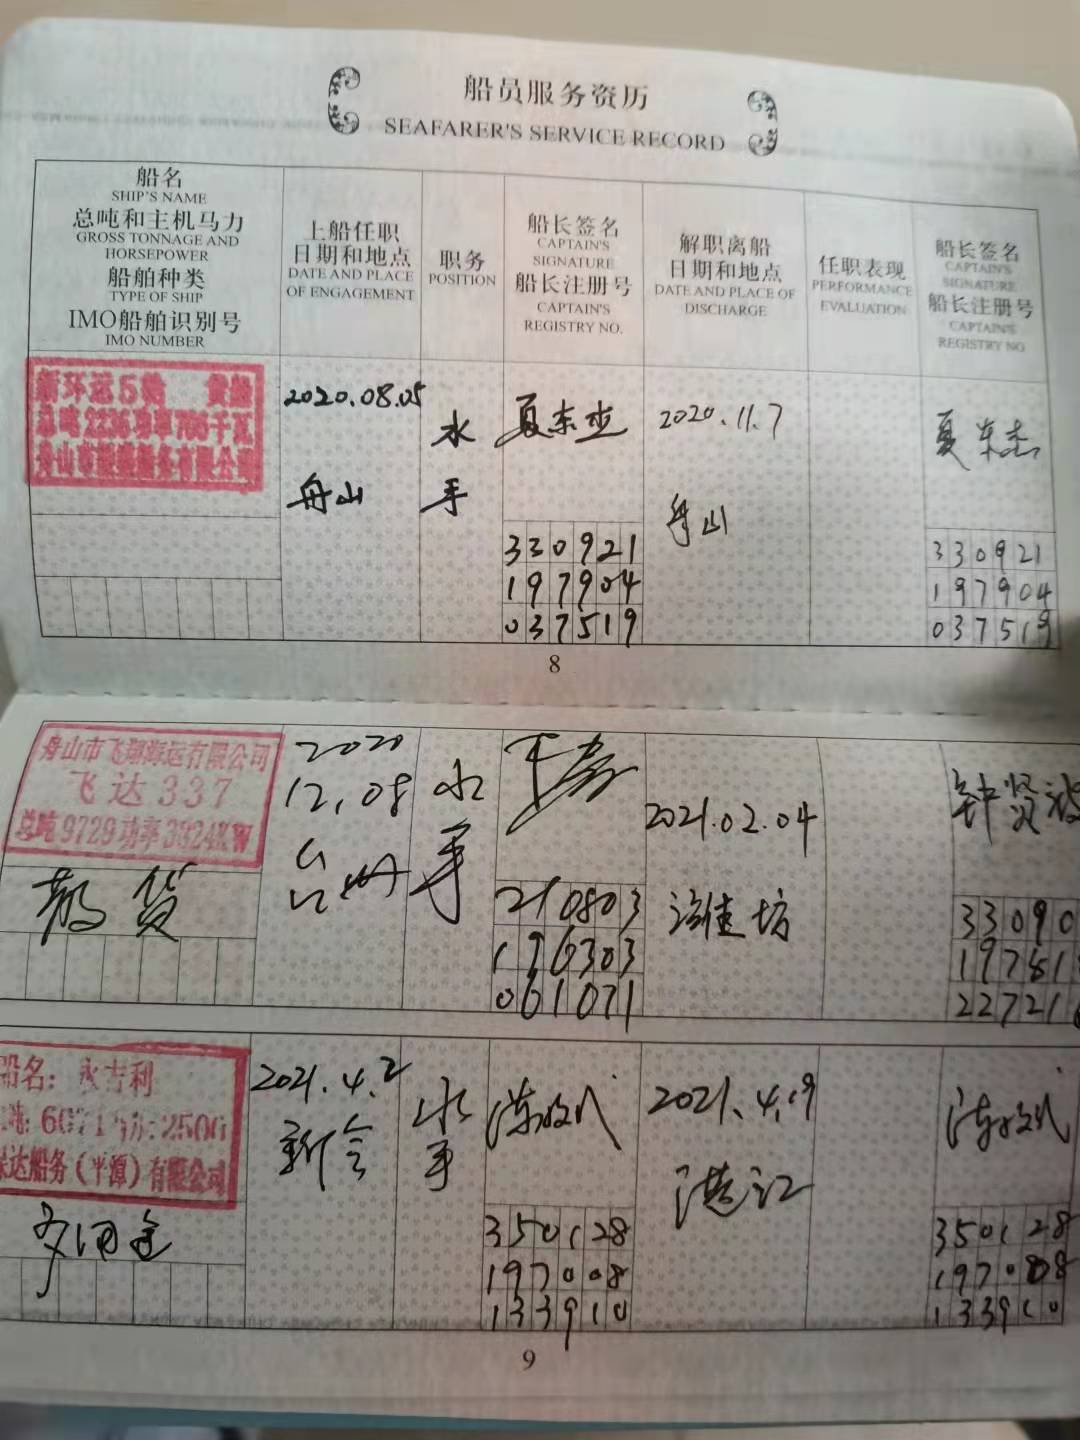 船员服务资历
SEAFARER'S SERVICE RECORD
船名
SHIP'S NAME
总吨和主机马力
GROSS TONNAGE AND
HORSEPOWER
船舶种类
TYPE OF SHIP
IMO船舶识别号
IMO NUMBER
上船任职
日期和地点
DATE AND PLACE
OF ENGAGEMENT
职务
POSITION
船长签名
CAPTAIN'S
SIGNATURE
船长注册号
CAPTAIN'S
REGISTRY NO.
解职离船
日期和地点
DATE AND PLACE OF
DISCHARGE
任职表现
PERFORMANCE
EVALUATION
船长签名
CAPTAIN'S
SIGNATURE
船长注册号
CAPTAIN'S
REGISTRY NO
新环运5轮
总吨2236功率735千瓦
舟山市 船务有限公司
2020.08.05
舟山
水
手
夏东杰
330921
197904
037519
2020.11.7
舟山
夏东杰
330921
197904
037519
8
舟山市飞翔海运有限公司
飞达337
总吨9729功率3824KW
散货
2020
12.08
台州
水
手
210803
196303
061071
2021.02.04
潍坊
钟贤波
33090
19781
22721
船名：永吉利
船务（平潭）有限公司
多用途
2021.4.2
新会
水
手
350128
197008
133910
2021.4.19
湛江
350128
197008
133910
9